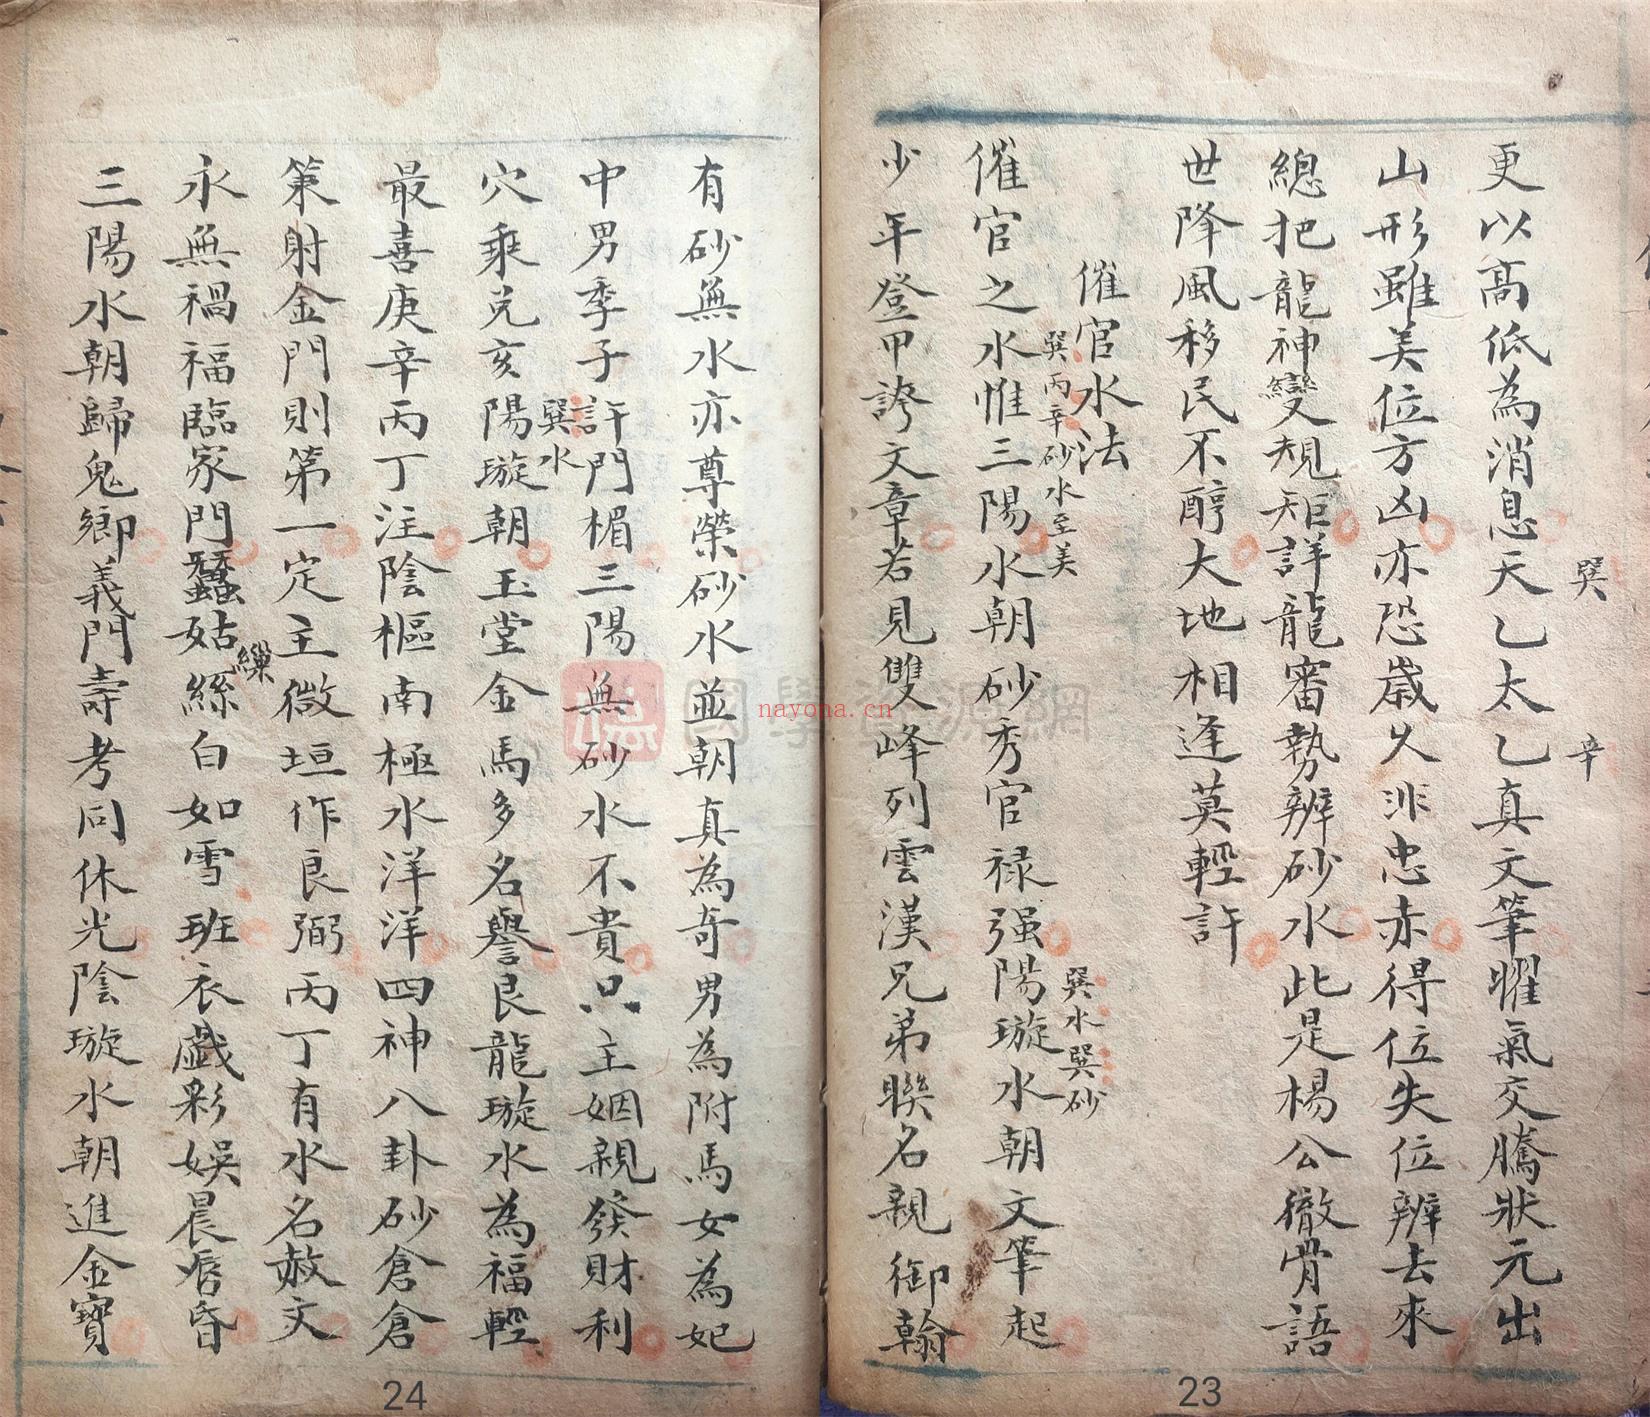 巽
辛
更以高低為消息天乙太乙真文筆曜氣交騰狀元出
山形雖美位方凶亦恐歲久非忠赤得位失位辨去來
總把龍神變規矩詳龍審勢辨砂水此是楊公徹骨語
世降風移民不醇大地相逢莫輕許
催官水法
巽丙辛砂水至美
催官之水惟三陽水朝砂秀官祿强陽璇水朝文筆起
巽水巽砂
少年登甲誇文章若見雙峰列雲漢兄弟聯名親御翰
23
有砂無水亦尊榮砂水並朝真為奇男為附馬女為妃
中男季子許門楣三陽無砂水不貴只主姻親發財利
巽水
穴乘兌亥陽璇朝玉堂金馬多名譽艮龍璇水為福輕
最喜庚辛丙丁注陰樞南極水洋洋四神八卦砂倉倉
策射金門則第一定主微垣作良弼丙丁有水名赦文
繅
永無禍福臨家門蠶姑絲白如雪班衣戯彩娛晨昏
三陽水朝歸鬼鄉義門壽考同休光陰璇水朝進金寶
24
國學資源網
nayona.cn